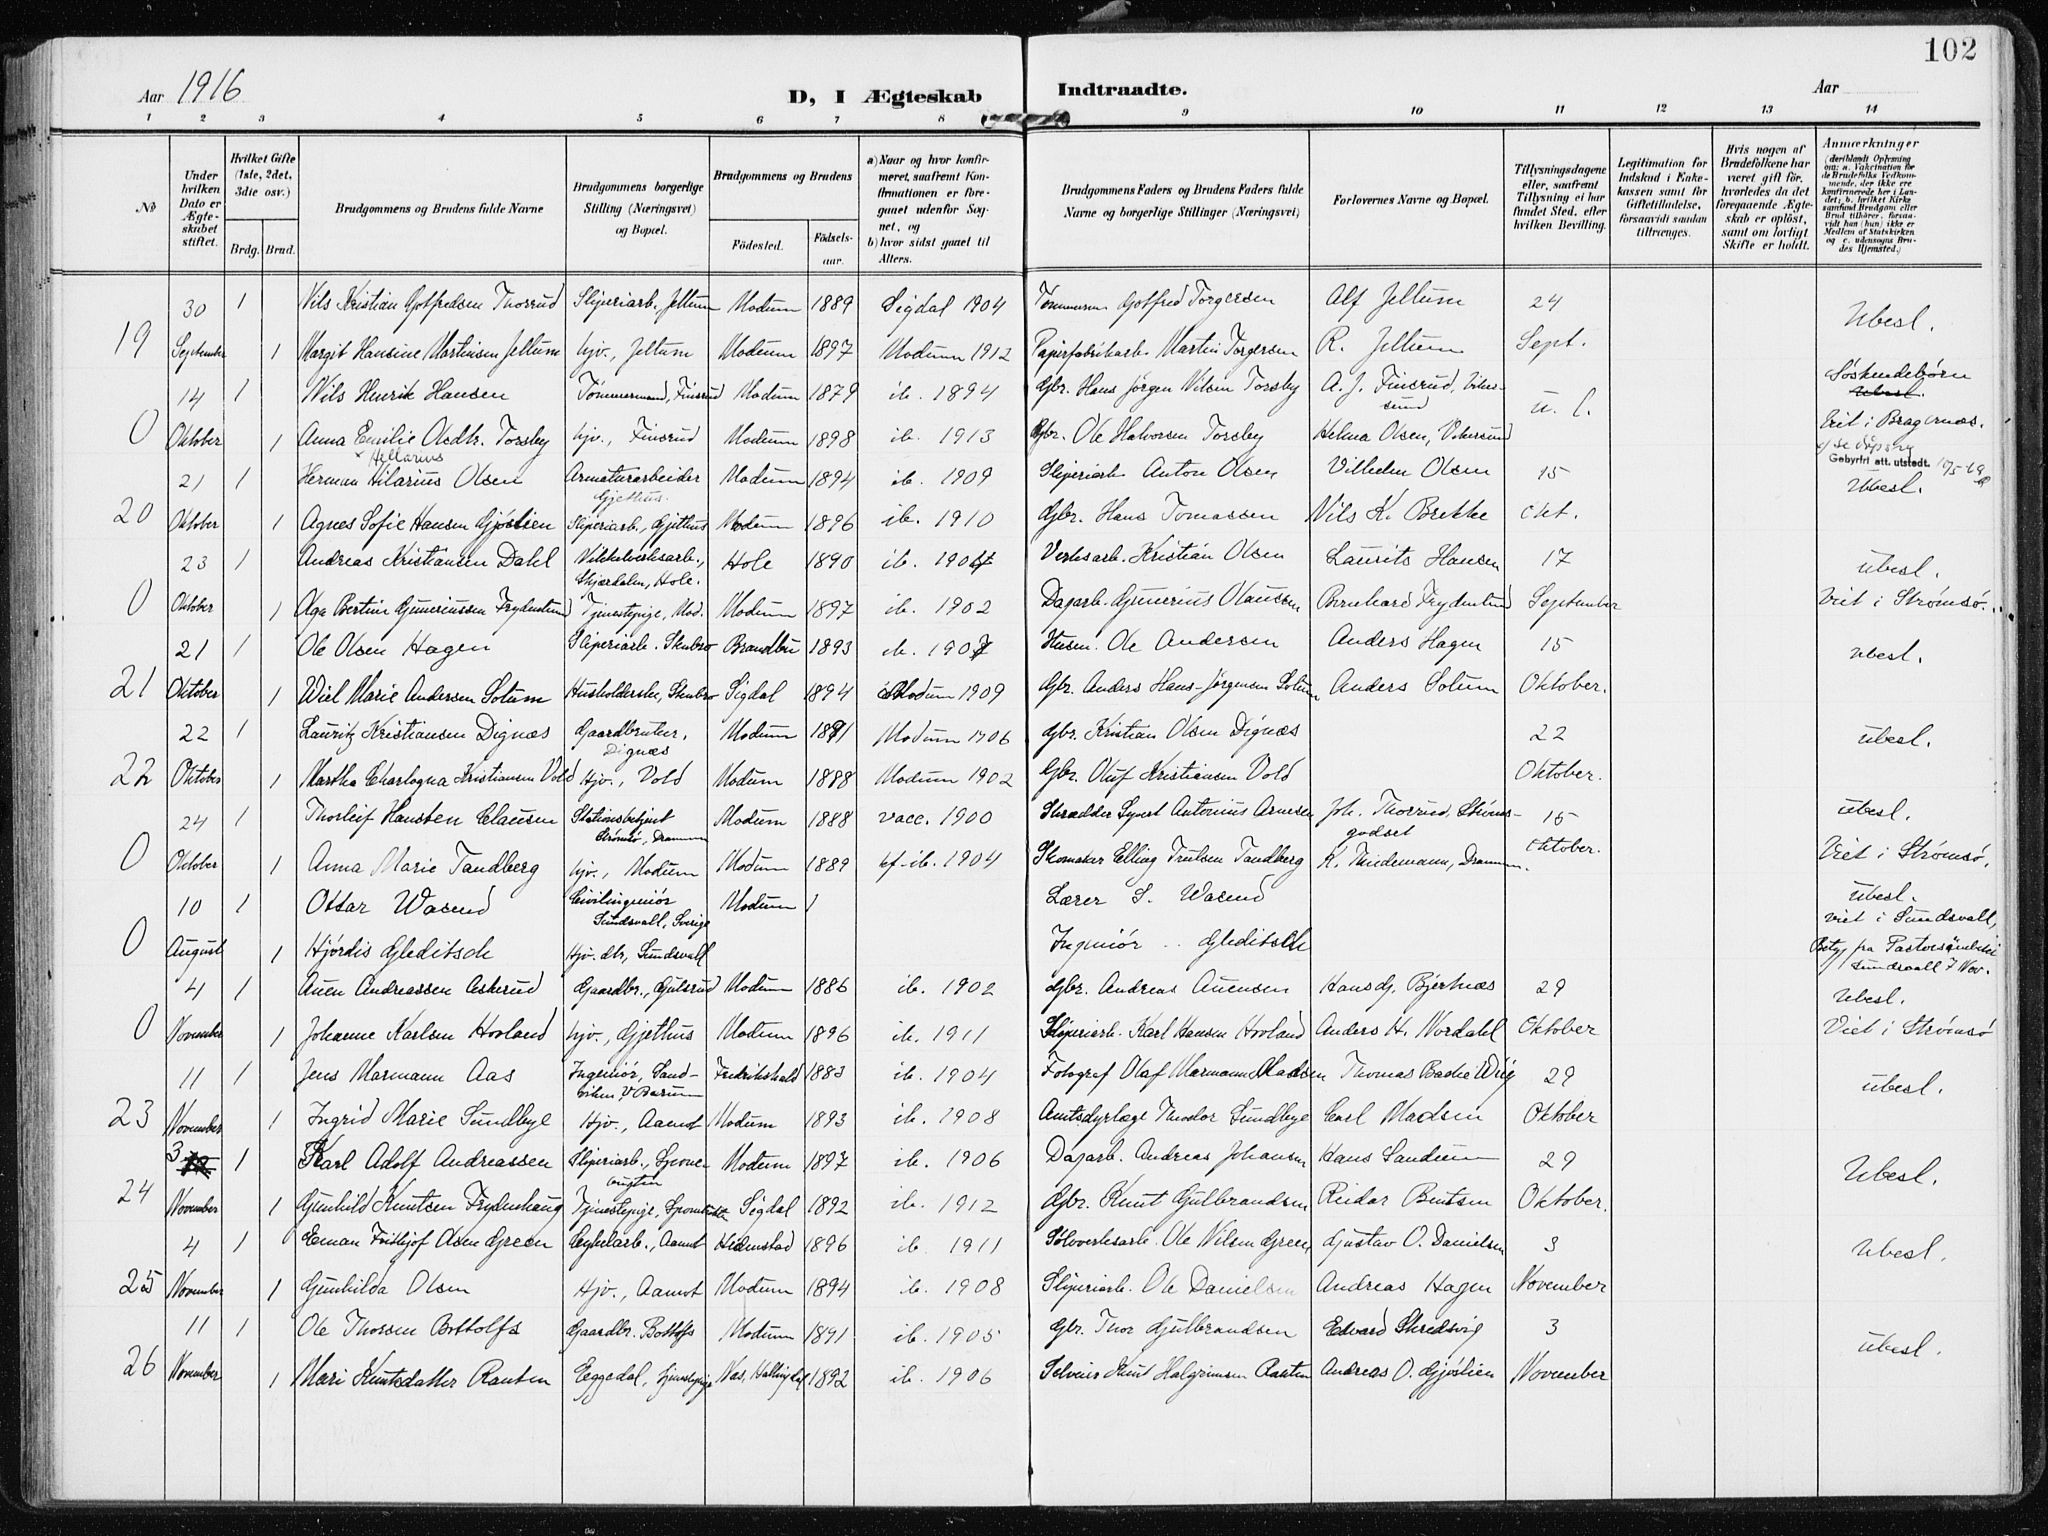 102
Aar 1916
D, I Ægteskab Indtraadte.
Aar
1 2 3 4 5 6 7 8 9 10 11 12 13 14
No
Under hvilken Dato er Ægteskabet stiftet.
Hvilket Gifte (1ste, 2det, 3die osv.)
Brdg. Brud.
Brudgommens og Brudens fulde Navne
Brudgommens borgerlige Stilling (Næringsvei) og Bopæl.
Brudgommens og Brudens
Födested. Födsels-aar.
a) Naar og hvor konfirmeret, saafremt Konfirmationen er foregaaet udenfor Sognet, og
b) hvor sidst gaaet til Alters.
Brudgommens Faders og Brudens Faders fulde Navne og borgerlige Stillinger (Næringsvei)
Forlovernes Navne og Bopæl.
Tillysningsdagene eller, saafremt Tillysning ei har fundet Sted, efter hvilken Bevilling.
Legitimation for Indskud i Enkekassen samt for Giftetilladelse, forsaavidt saadan tiltrænges.
Hvis nogen af Brudefolkene har været gift før, hvorledes da det foregaaende Ægteskab er opløst, samt om lovligt Skifte er holdt.
Anmærkninger
30 1 Nils Kristian Gotfredsen Thorrud Sliperiarb. Jellum Modum 1889 Sigdal 1904 Tømmerm. Gotfred Torgersen Alf Jellum 24 Ubesl.
19 September 1 Margit Hansine Martinsen Jellum hjv., Jellum Modum 1897 Modum 1912 Papirfabrikarb. Martin Torgersen R. Jellum Sept.
14 1 Nils Henrik Hansen Tømmermand, Finsrud Modum 1879 ib. 1894 Gbr. Hans Jørgen Nilsen Torsby A. J. Finsrud, Vikersund u. l. Søskendebørn
0 Oktober 1 Anna Emilie Olsdtr. Torsby hjv., Finsrud Modum 1898 ib. 1913 Gbr. Ole Halvorsen Torsby Helma Olsen, Vikersund Viet i Bragernæs.
x Hellarius
Gebyrfri att. utstedt.
21 1 Herman Hilarius Olsen Armaturarbeider Gjethus. Modum 1894 ib. 1909 Sliperiarb. Anton Olsen Vilhelm Olsen 15 Ubesl.
20 Oktober 1 Agnes Sofie Hansen Gjøslien Sliperiarb., Gjethus Modum 1896 ib. 1910 Gbr. Hans Tomassen Nils K. Brekke Okt.
23 1 Andreas Kristiansen Dahl Nikkelverksarb., Skjærdalen, Hole. Hole 1890 ib. 1904 Verksarb. Kristian Olsen Laurits Hansen 17 ubesl.
0 Oktober 1 Aga Bertine Guneriussen Frydenlund Tjenestepige, Mod. Modum 1897 ib. 1902 Dagarb. Gunerius Olaussen Bernhard Frydenlund September Viet i Strømsø.
21 1 Ole Olsen Hagen Sliperiarb. Skubro Brandbu 1893 ib. 1907 Husm. Ole Andersen Anders Hagen 15 ubesl.
21 Oktober 1 Wiel Marie Andersen Solum Husholderske, Skubro Sigdal 1894 Modum 1909 Gbr. Anders Hans-Jørgensen Solum Anders Solum Oktober.
22 1 Lauritz Kristiansen Dignæs Gaardbruker, Dignæs Modum 1891 Modum 1906 Gbr. Kristian Olsen Dignæs 22 ubesl.
22 Oktober 1 Martha Charlogna Kristiansen Vold Hjv., Vold Modum 1888 Modum 1902 Gbr. Oluf Kristiansen Vold Oktober.
24 1 Thorleif Hansten Clausen Stationsbetjent Strømsø, Drammen Modum 1888 vacc. 1900 Skrædder Syvert Antonius Arnesen Joh. Thorrud, Strømsgodset 15 ubesl.
0 Oktober 1 Anna Marie Tandberg hjv., Modum Modum 1889 kf. ib. 1904 Skomaker Elling Trulsen Tandberg K. Thidemann, Drammen. Oktober. Viet i Strømsø.
10 1 Ottar Wasend Civilingeniør Sundsvall, Sverige Modum Lærer S. Wasend ubesl. viet i Sundsvall,
0 August 1 Hjørdis Gleditsch Hjv. dtr, Sundsvall Ingeniør .. Gleditsch Sundsvall 7 Nov.
4 1 Auen Andreassen Askerud Gaardbr., Gulsrud Modum 1886 ib. 1902 Gbr. Andreas Auensen Hans G. Bjerknæs 29 Ubesl.
0 November 1 Johanne Karlsen Hovland hjv., Gjethus Modum 1896 ib. 1911 Sliperiarb. Karl Hansen Hovland Anders H. Nordahl Oktober Viet i Strømsø
11 1 Jens Marmann Aas Ingeniør, Sandviken V. Bærum Fredrikshald 1883 ib. 1904 Fotograf Olaf Marmann Madsen Thomas Bache Wiig 29 ubesl.
23 November 1 Ingrid Marie Sundbye Hjv., Aamot Modum 1893 ib. 1908 Amtsdyrlæge Theodor Sundbye Carl Madsen Oktober
3 1 Karl Adolf Andreassen Sliperiarb., Modum 1897 ib. 1906 Dagarb. Andreas Johansen Hans Sandum 29 Ubesl.
24 November 1 Gunhild Knutsen Frydenhaug Tjenestepige, Sigdal 1892 ib. 1912 Gbr. Knut Gulbrandsen Reidar Bentsen Oktober.
4 1 Eman Fritjof Olsen Green Aamot Hiemstad 1896 ib. 1911 Sølvverksarb. Ole Nilsen Green Gustav O. Danielsen 3 Ubesl.
25 November 1 Gunhilda Olsen Hjv., Aamot Modum 1894 ib. 1908 Sliperiarb. Ole Danielsen Andreas Hagen November
11 1 Ole Thorsen Bottolfs Gaardbr. Bottolfs Modum 1891 ib. 1905 Gbr. Thor Gulbrandsen Edvard Skredsvig 3 ubesl.
26 November 1 Mari Knutsdatter Rauten Eggedal, tjenestepige Næs, Hallingdal 1892 ib. 1906 Selveier Knut Halgrimsen Rauten Andreas O. Gjøslien November